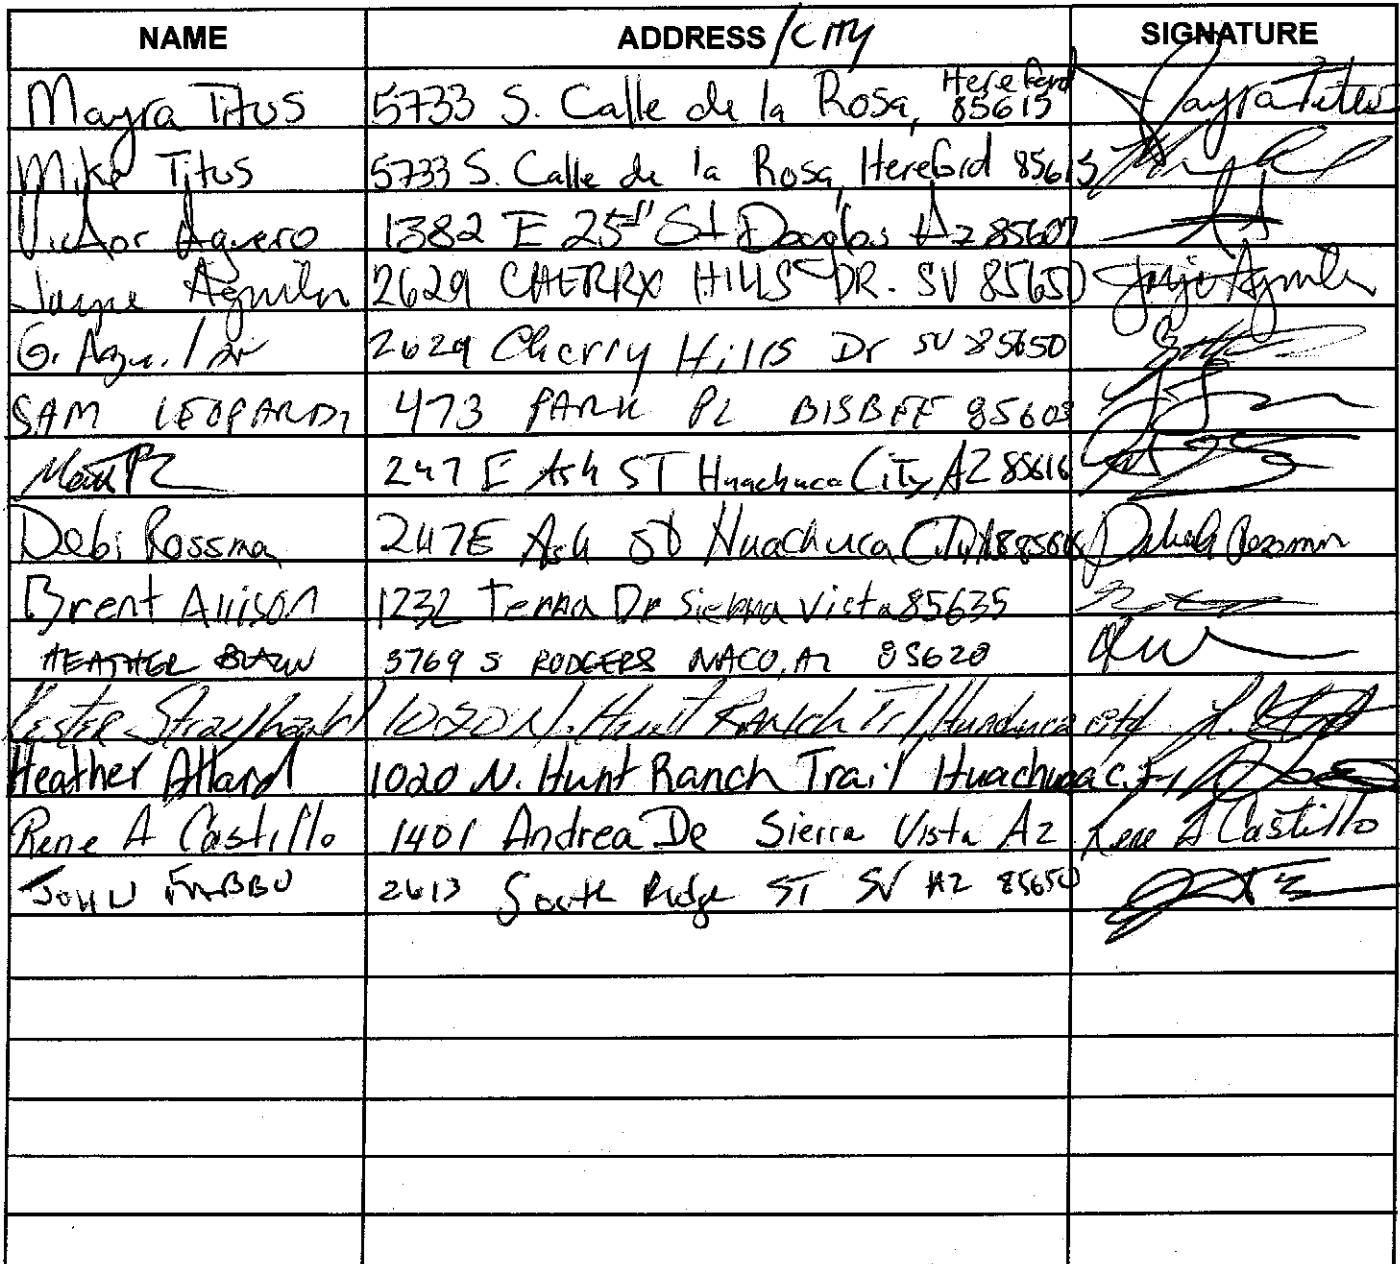 NAME ADDRESS /CITY SIGNATURE
Mayra Titus 5733 S. Calle de la Rosa, Hereford 85615 Mayra Titus
Mike Titus 5733 S. Calle de la Rosa, Hereford 85615
Victor Aguero 1382 E 25th St Douglas Az 85607
Jayne Aguilar 2629 CHERRY HILLS DR. SV 85650
G. Aguilar 2629 Cherry Hills Dr SV 85650
SAM LEOPARDI 473 PARK PL BISBEE 85603
247 E Ash ST Huachuca City AZ 85616
Debi Rossman 247 E Ash St Huachuca City
Brent Allison 1232 Terra Dr Sierra Vista 85635
HEATHER 3769 S RODGERS NACO, AZ 85620
Lester 1020 N. Hunt Ranch Trl, Huachuca city
Heather Allard 1020 N. Hunt Ranch Trail Huachuca City
Rene A Castillo 1401 Andrea De Sierra Vista Az Rene A Castillo
JOHN 2613 South Ridge ST SV AZ 85650